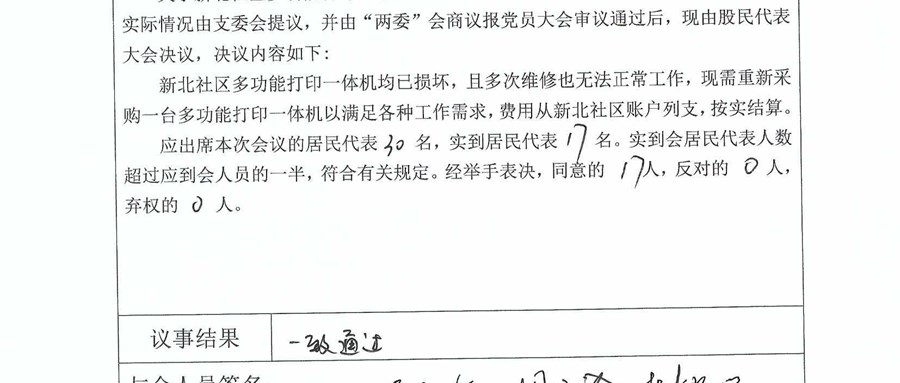 实际情况由支委会提议，并由“两委”会商议报党员大会审议通过后，现由股民代表
大会决议，决议内容如下：
新北社区多功能打印一体机均已损坏，且多次维修也无法正常工作，现需重新采
购一台多功能打印一体机以满足各种工作需求，费用从新北社区账户列支，按实结算。
应出席本次会议的居民代表 30 名，实到居民代表 17 名。实到会居民代表人数
超过应到会人员的一半，符合有关规定。经举手表决，同意的 17人，反对的 0 人，
弃权的 0 人。
议事结果 一致通过
与会人员签名